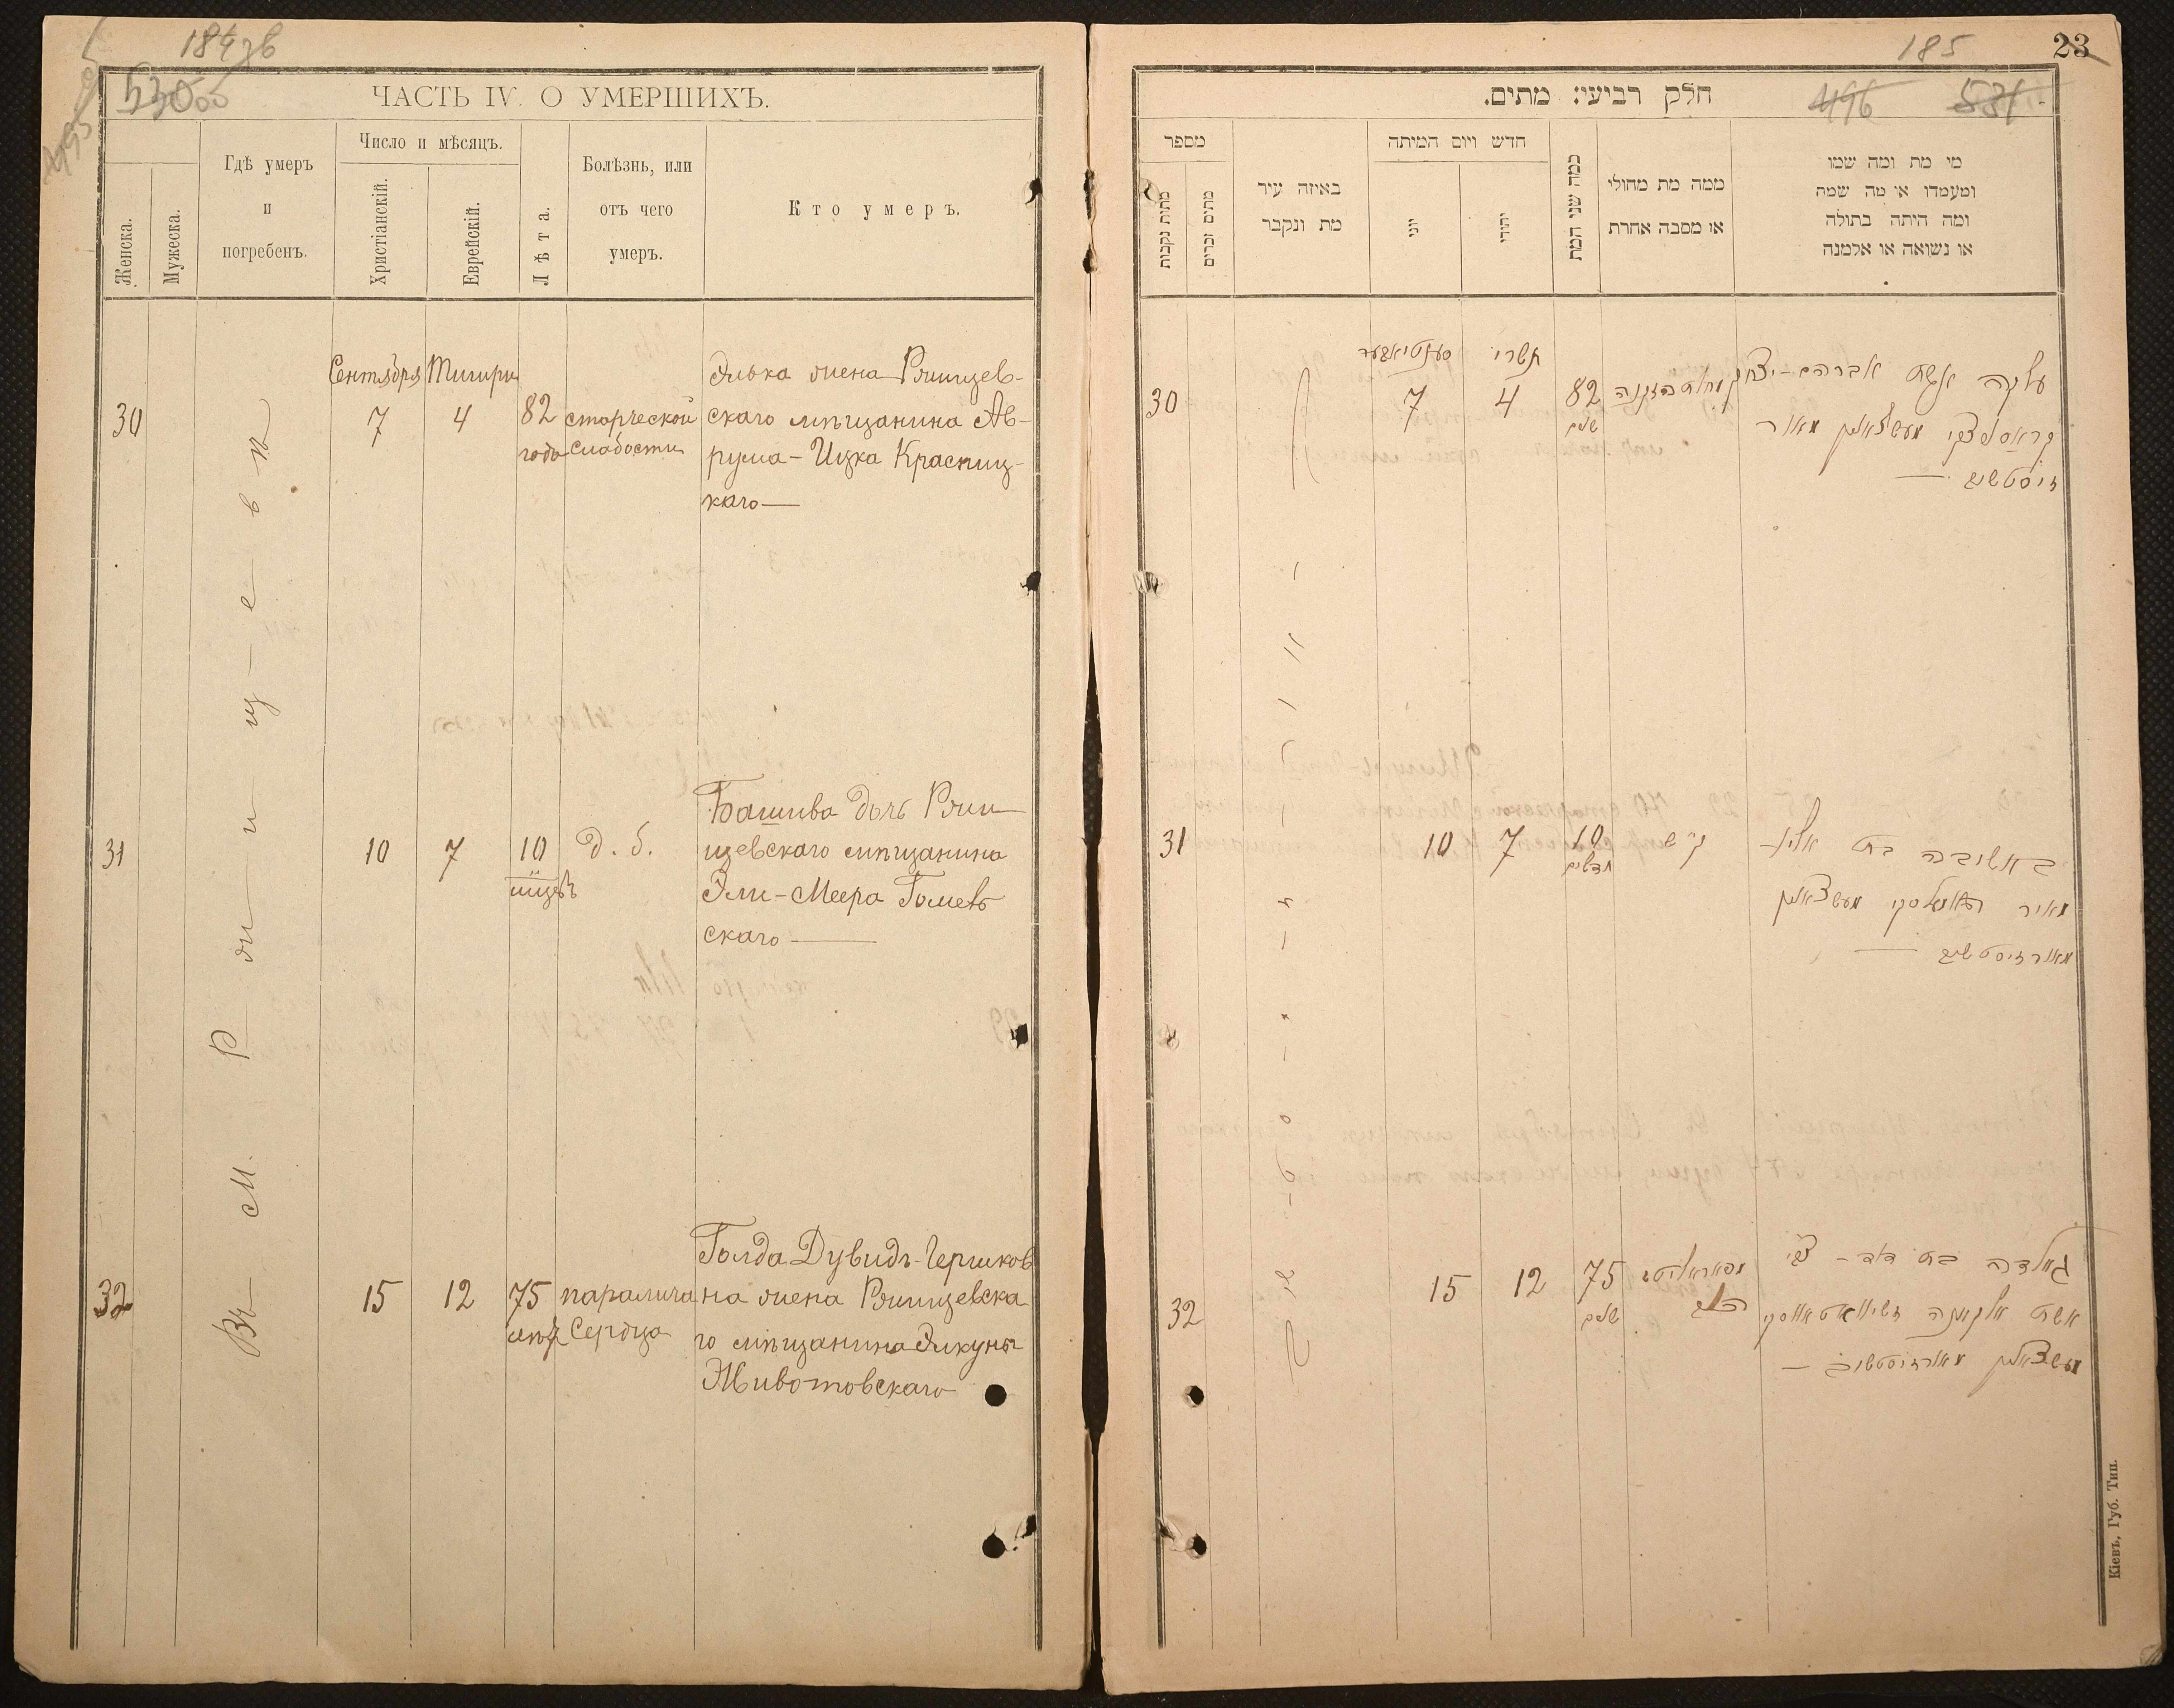 185
23
530
ЧАСТЬ IV. О УМЕРШИХЪ.
Женска.
Мужеска.
Гдѣ умеръ
и
погребенъ.
Число и мѣсяцъ.
Христіанскій.
Еврейскій.
Лѣта.
Болѣзнь, или
отъ чего
умеръ.
Кто умеръ.
Въ М. Ржищевѣ
Сентября Тишри
30
7
4
82
года
старческой
слабости
Элька жена Ржищев-
скаго мѣщанина Ав-
рума-Ицка Красниц-
каго—
31
10
7
10
мѣсц
д. б.
Башива дочь Ржи
щевскаго мѣщанина
Эли-Меера Гомель
скаго —
32
15
12
75
лѣт
паралича
Сердца
Голда Дувидъ-Гершков
на жена Ржищевска
го мѣщанина Элкуны
Животовскаго
חלק רביעי: מתים.
496
531
מספר
מתות נקבות
מתים זכרים
באיזה עיר
מת ונקבר
חדש ויום המיתה
יוני
יהודי
כמה שני המת
ממה מת מחולי
או מסבה אחרת
מי מת ומה שמו
ומעמדו או מה שמה
ומה היתה בתולה
או נשואה או אלמנה
תשרי
30
7
4
82
שנים
עלקה אשת אברהם-יצחק
31
10
7
10
חדשים
באשובה בת אלי-
מאיר
32
15
12
75
שנים
הלב
גאלדה בת דוד-צבי
אשת אלקונה
Кіевъ, Губ. Тип.